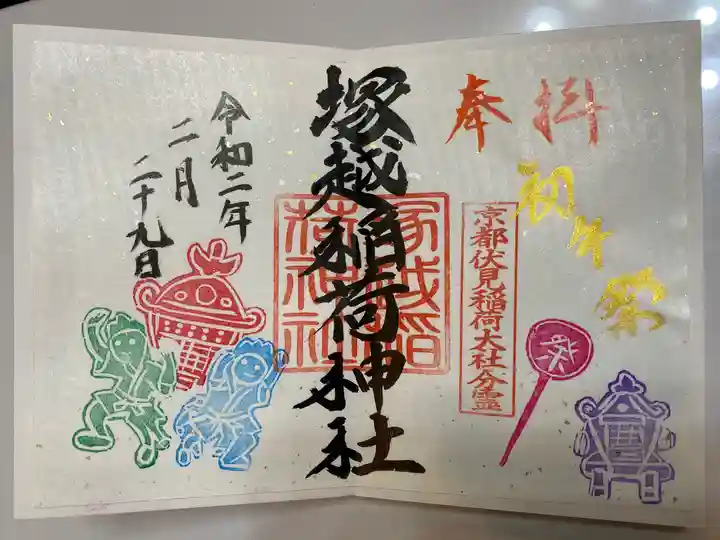 奉拝
初午祭
京都伏見稲荷大社分霊
塚越稲荷神社
塚越稲荷神社
令和二年
二月
二十九日